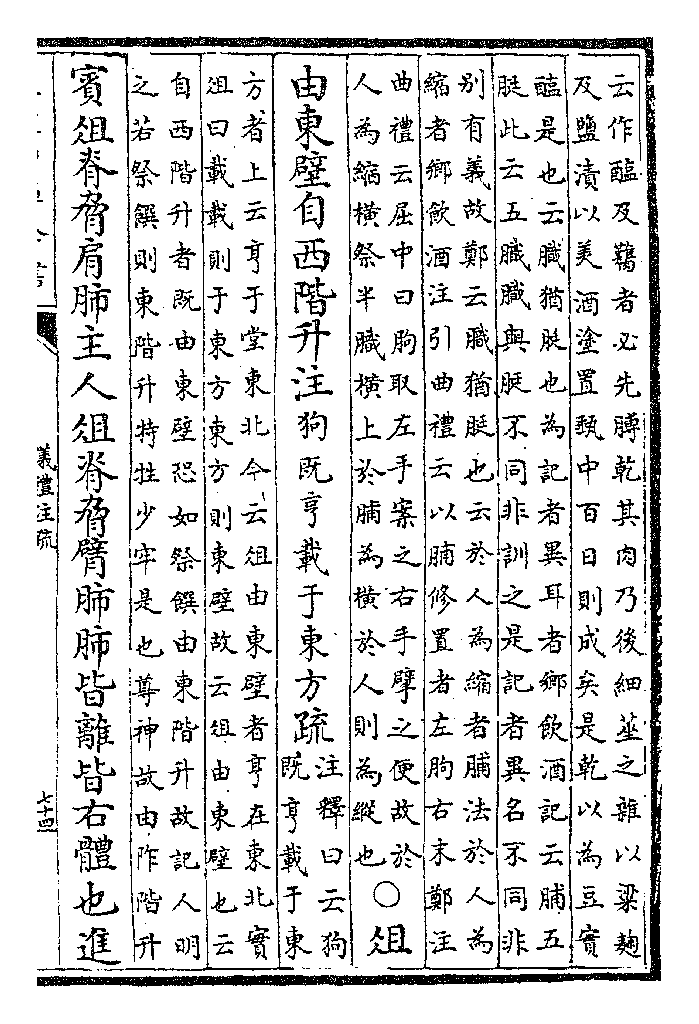 云作醢及臡者必先膊乾其肉乃後細莝之雜以粱麹
及鹽漬以美酒塗置甀中百日則成矣是乾以為豆實
醢是也云膱猶脡也為記者異耳者鄉飲酒記云脯五
脡此云五膱膱與脡不同非訓之是記者異名不同非
别有義故鄭云膱猶脡也云於人為縮者脯法於人為
縮者鄉飲酒注引曲禮云以脯修置者左朐右末鄭注
曲禮云屈中曰朐取左手案之右手擘之便故於
人為縮横祭半膱横上於脯為横於人則為縱也
○俎
由東壁自西階升注狗既亨載于東方疏
注釋曰云狗
既亨載于東
方者上云亨于堂東北今云俎由東壁者亨在東北實
俎曰載載則于東方東方則東壁故云俎由東壁也云
自西階升者既由東壁恐如祭饌由東階升故記人明
之若祭饌則東階升特牲少牢是也尊神故由阼階升
賓俎脊脅肩肺主人俎脊脅臂肺肺皆離皆右體也進
儀禮注疏
七十四